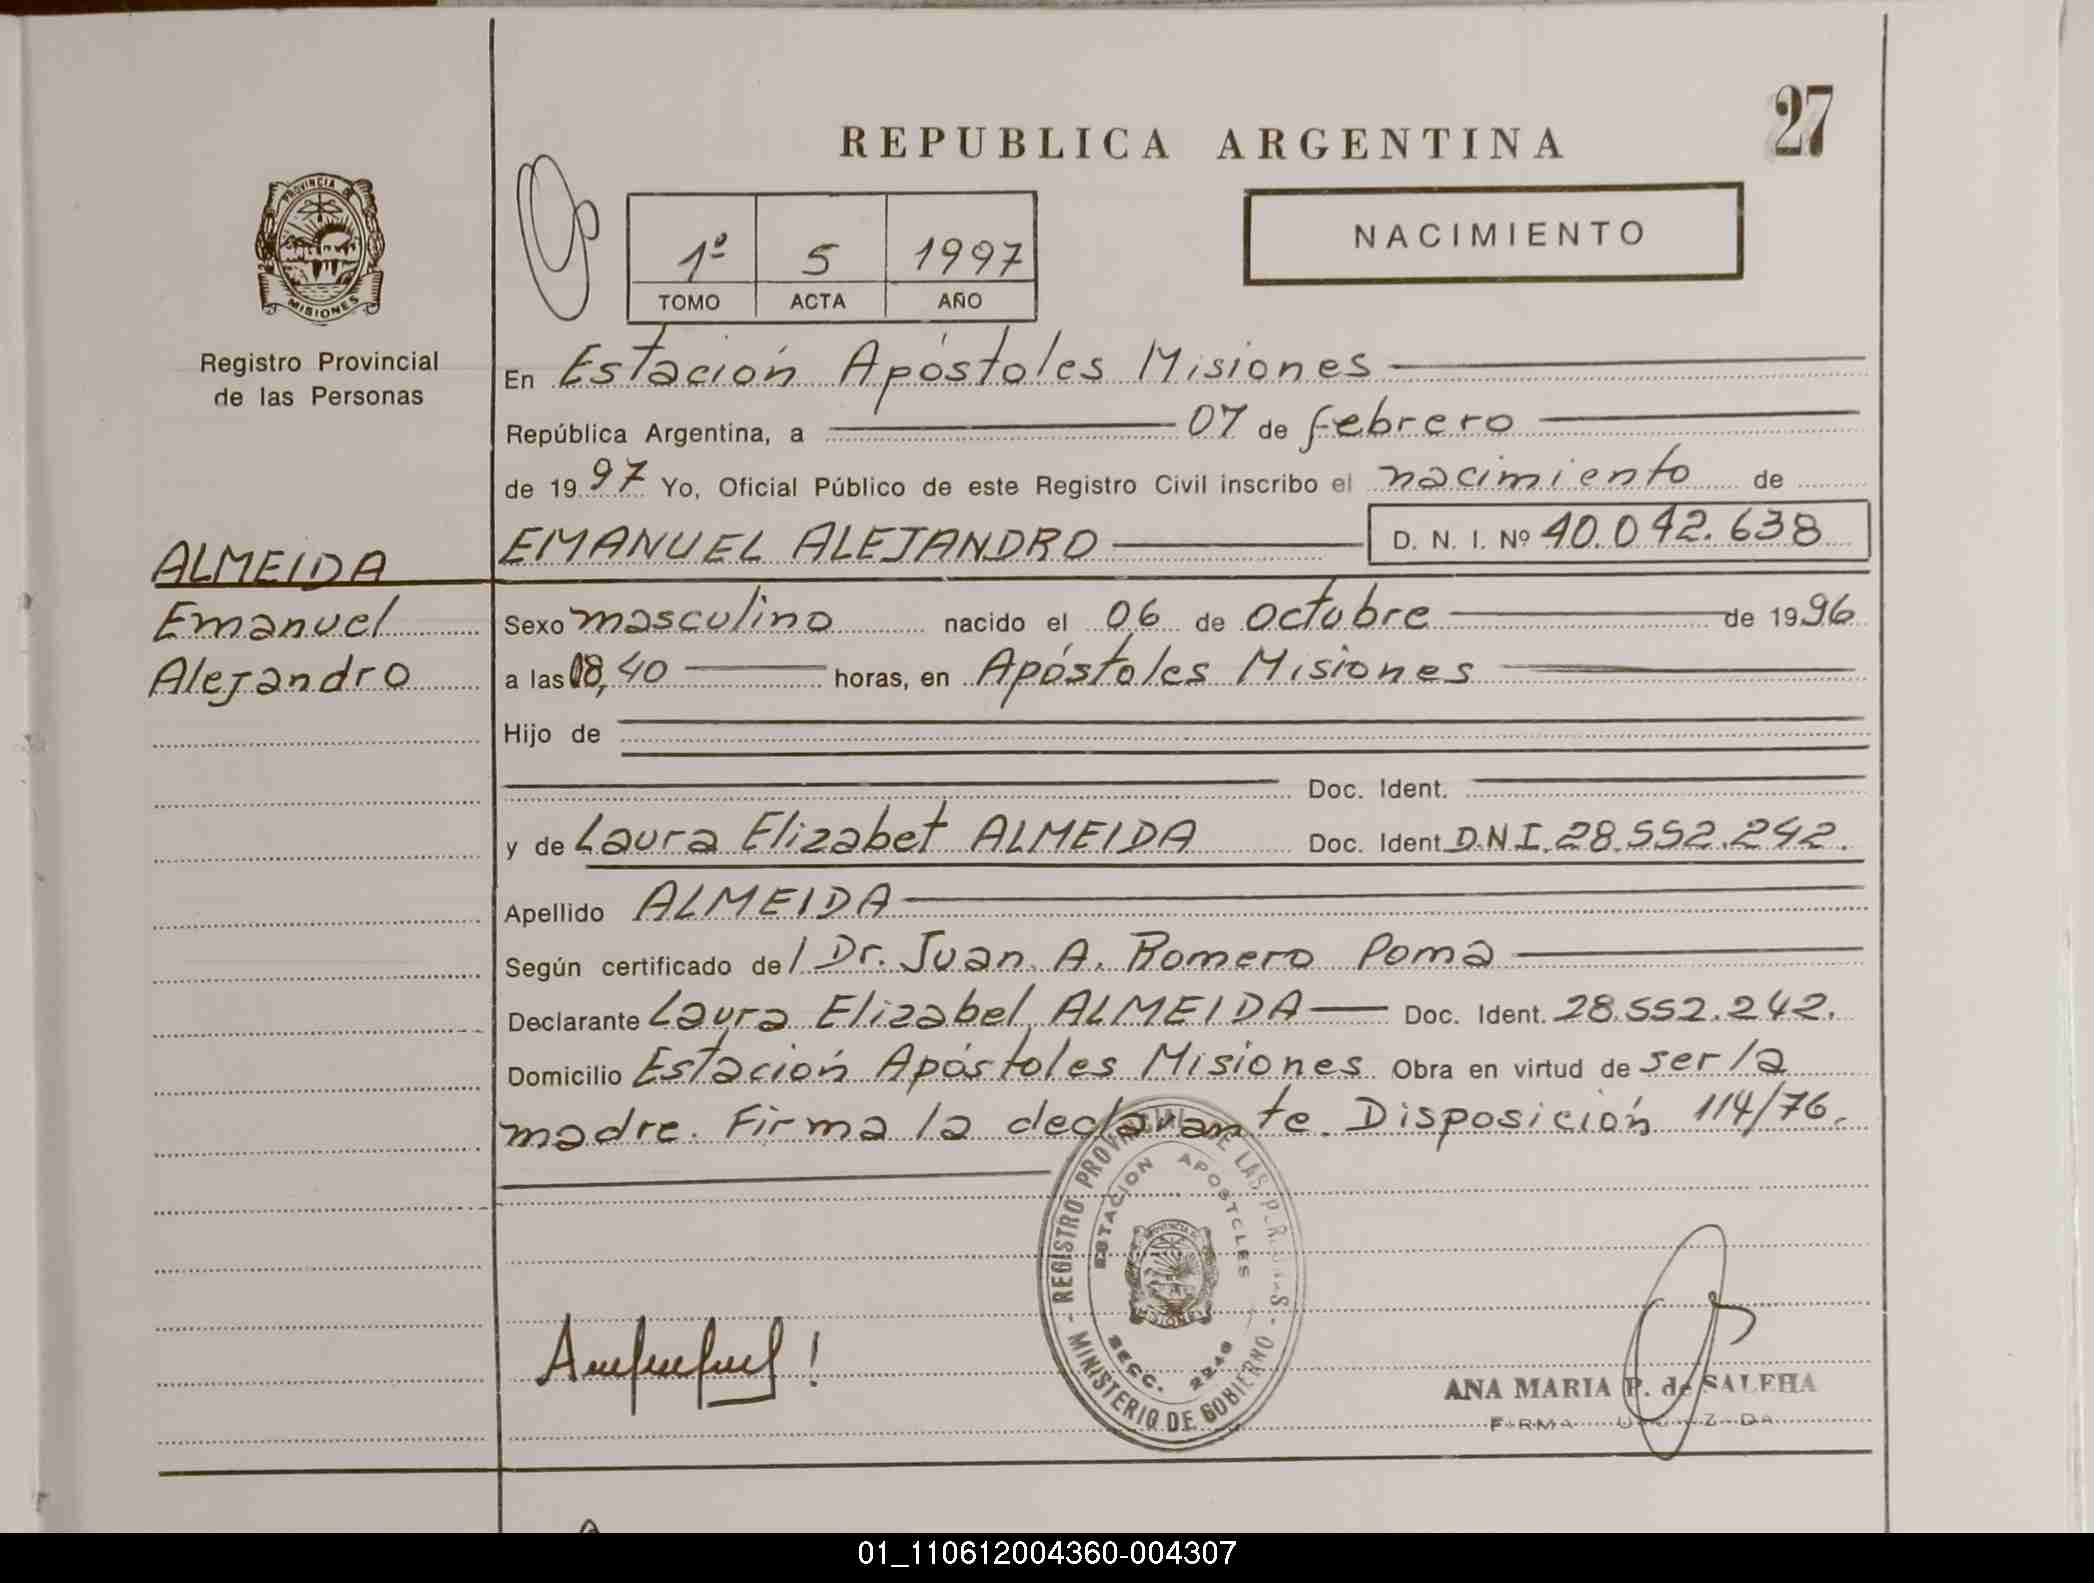 27
REPUBLICA ARGENTINA
PROVINCIA DE
MISIONES
Registro Provincial
de las Personas
1º 5 1997
TOMO ACTA AÑO
NACIMIENTO
En Estación Apóstoles Misiones
República Argentina, a 07 de febrero
de 1997 Yo, Oficial Público de este Registro Civil inscribo el nacimiento de
EMANUEL ALEJANDRO D. N. I. Nº 40.042.638
ALMEIDA
Emanuel
Alejandro
Sexo masculino nacido el 06 de octubre de 1996
a las 08,40 horas, en Apóstoles Misiones
Hijo de
Doc. Ident.
y de Laura Elizabet ALMEIDA Doc. Ident. D.N.I. 28.552.242.
Apellido ALMEIDA
Según certificado del Dr. Juan A. Romero Poma
Declarante Laura Elizabel ALMEIDA Doc. Ident. 28.552.242.
Domicilio Estación Apóstoles Misiones Obra en virtud de ser la
madre. Firma la declarante. Disposición 114/76.
REGISTRO PROVINCIAL DE LAS PERSONAS
ESTACION APOSTOLES
SECC. 2248
MINISTERIO DE GOBIERNO
ANA MARIA P. de SALEHA
FIRMA
01_110612004360-004307